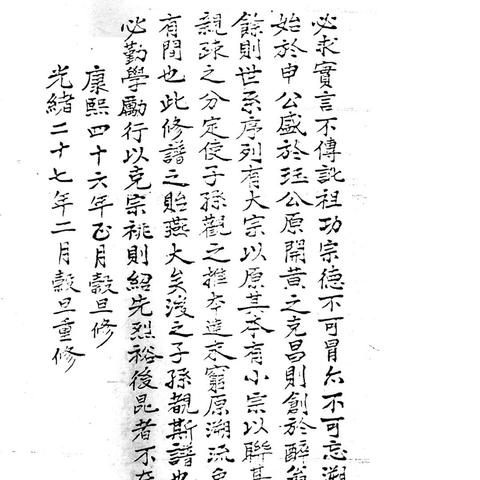 必求實言不傳訛祖功宗德不可冒亦不可忘溯
始於申公盛於珏公原開黄之克昌則創於醉翁
餘則世系序列有大宗以原其本有小宗以聯其
親疎之分定使子孫觀之推本追来窮原溯流
有間也此修譜之貽燕大矣後之子孫覩斯譜也
必勤學勵行以克宗祧則紹先烈裕後昆者不
康熙四十六年正月穀旦修
光緒二十七年二月穀旦重修